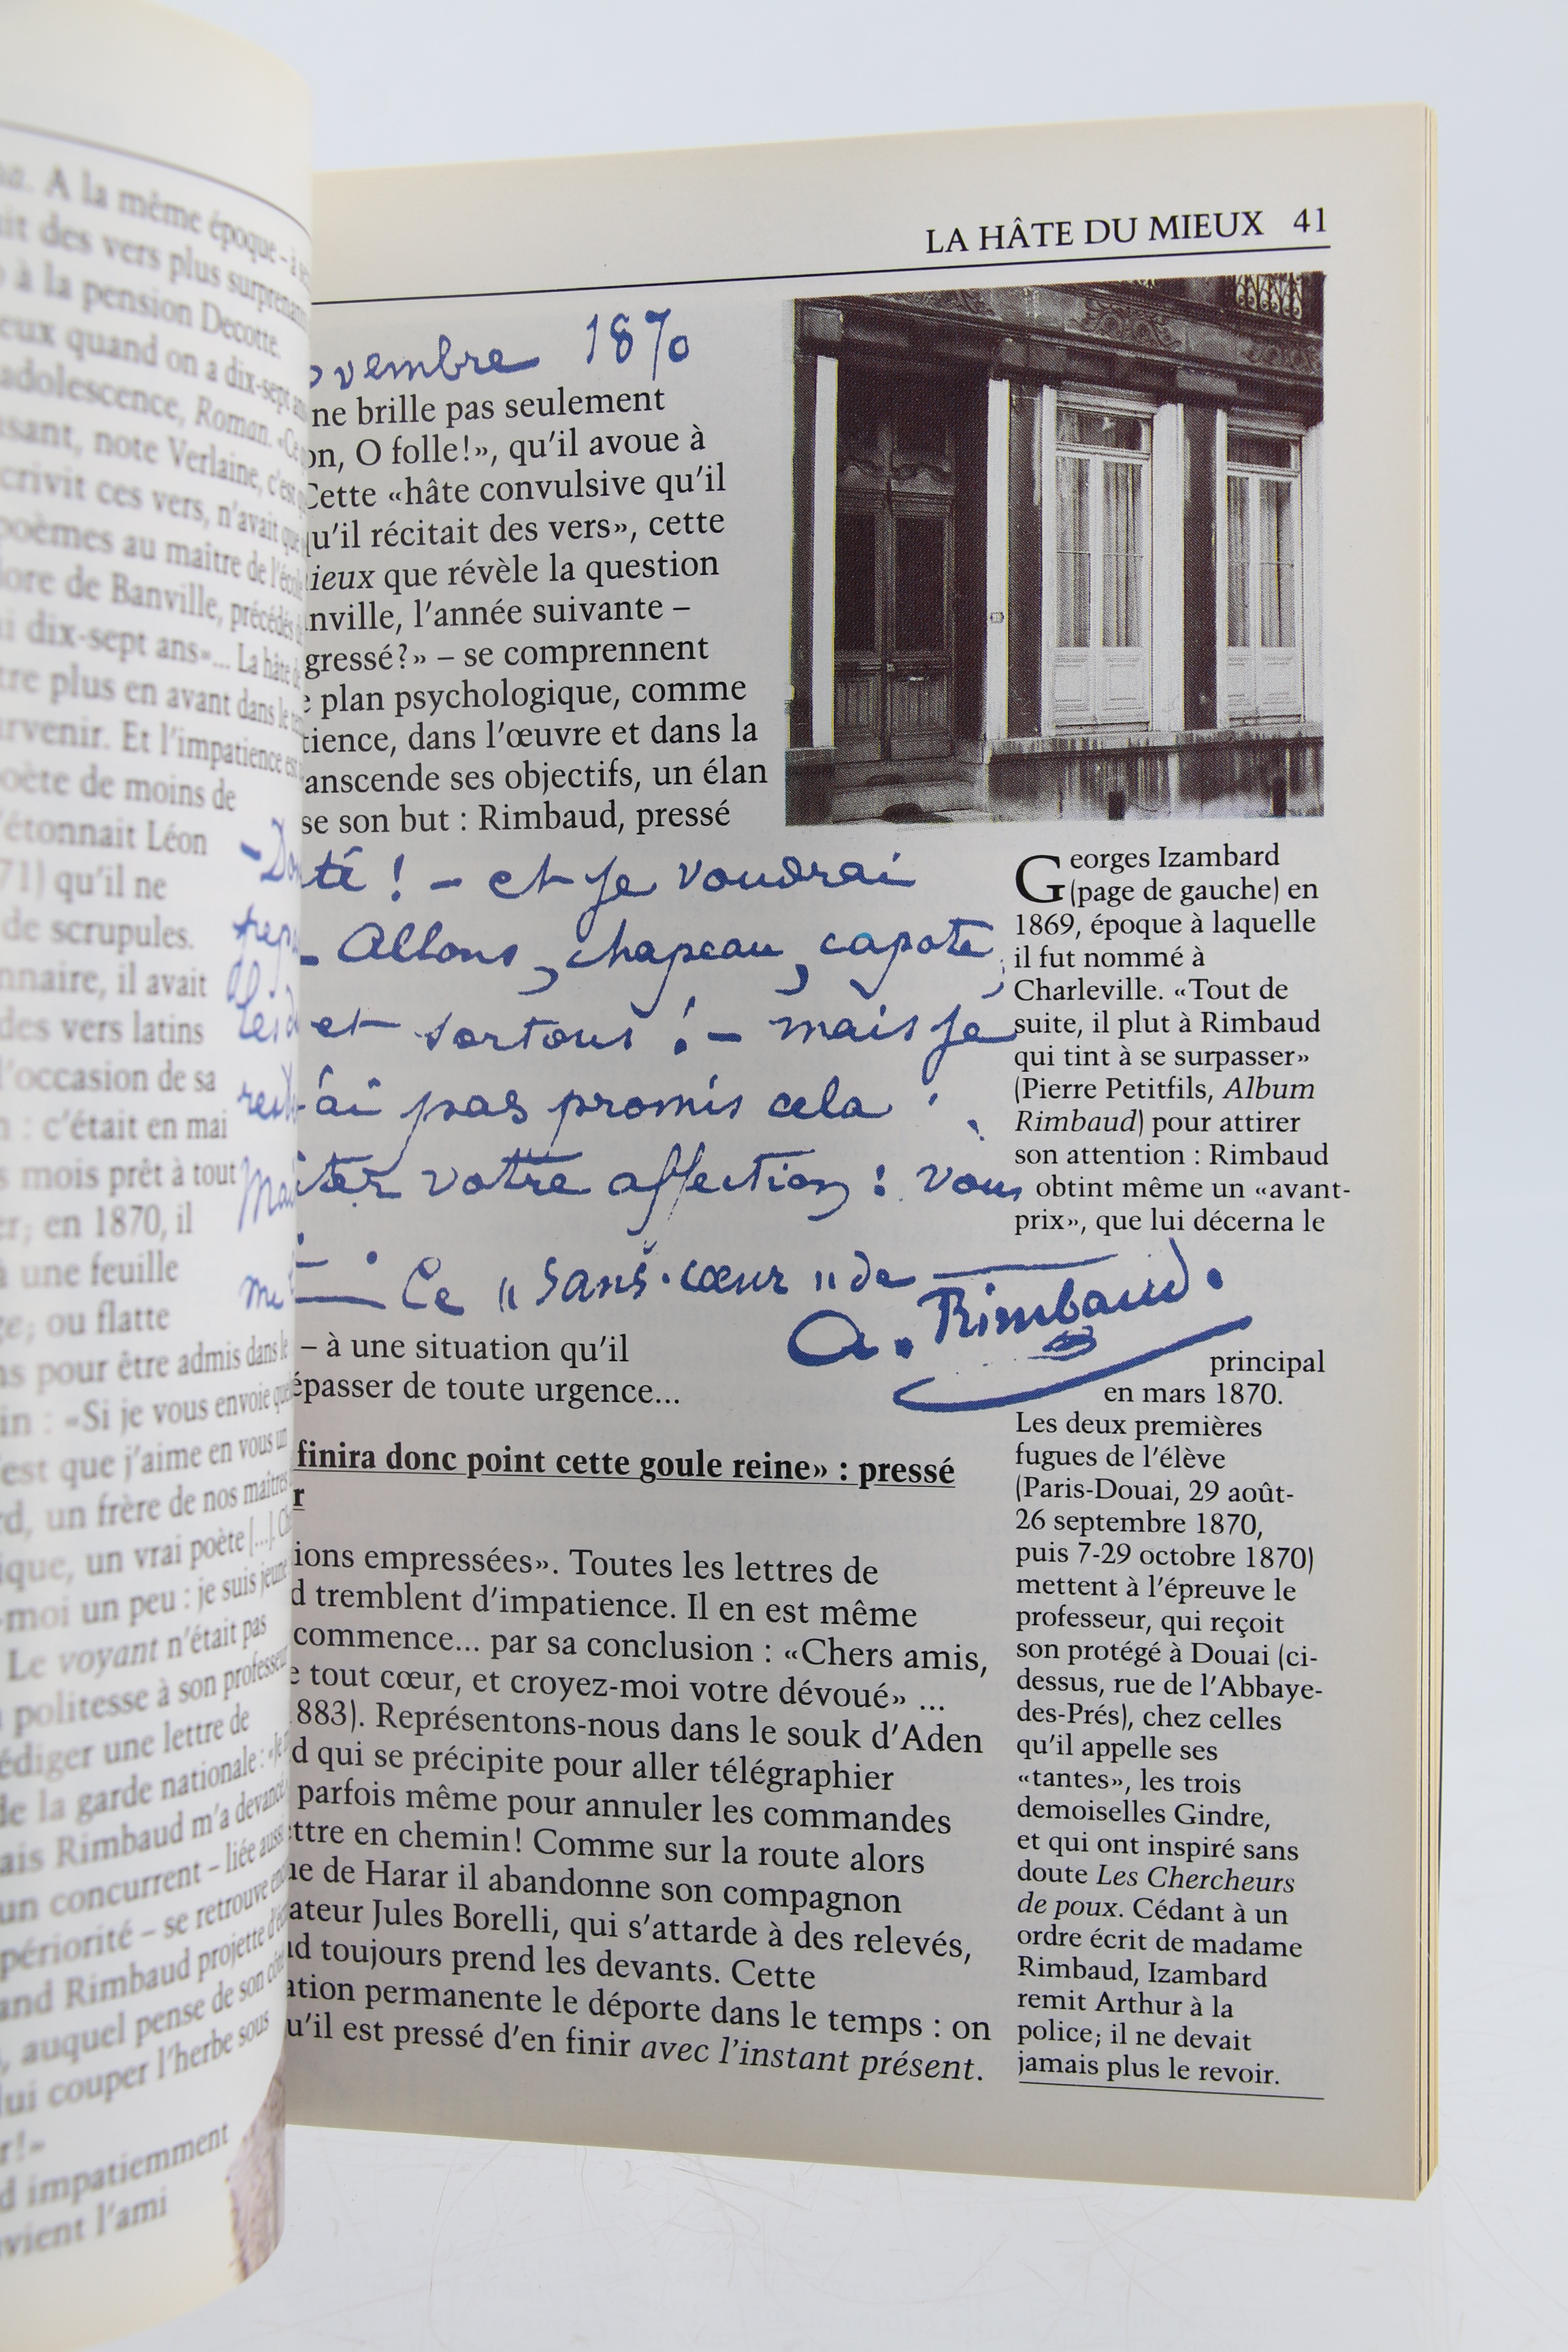 A la même époque – à
des vers plus surprenants
à la pension Decotte.
quand on a dix-sept ans
adolescence, Roman. «Ce
note Verlaine, c'est
ces vers, n'avait que
poèmes au maître de l'école
de Banville, précédés
dix-sept ans»... La hâte de
plus en avant dans le
Et l'impatience est
poète de moins de
étonnait Léon
71) qu'il ne
de scrupules.
il avait
des vers latins
l'occasion de sa
: c'était en mai
mois prêt à tout
en 1870, il
à une feuille
ou flatte
pour être admis dans le
: «Si je vous envoie
est que j'aime en vous un
un frère de nos maîtres
un vrai poète [...].
-moi un peu : je suis jeune
Le voyant n'était pas
politesse à son professeur
rédiger une lettre de
de la garde nationale :
Rimbaud m'a devancé
un concurrent – liée aussi
– se retrouve
Rimbaud projette
auquel pense de son côté
lui couper l'herbe sous
r!»
impatiemment
l'ami
LA HÂTE DU MIEUX 41
ovembre 1870
ne brille pas seulement
on, O folle!», qu'il avoue à
Cette «hâte convulsive qu'il
qu'il récitait des vers», cette
ieux que révèle la question
nville, l'année suivante –
gressé?» – se comprennent
plan psychologique, comme
tience, dans l'œuvre et dans la
anscende ses objectifs, un élan
se son but : Rimbaud, pressé
té ! – et je voudrai
– Allons, chapeau, capote,
et sortons ! – mais je
'ai pas promis cela
iter votre affection : vous
Ce «sans-cœur» de
A. Rimbaud.
– à une situation qu'il
épasser de toute urgence...
finira donc point cette goule reine» : pressé
r
ions empressées». Toutes les lettres de
d tremblent d'impatience. Il en est même
commence... par sa conclusion : «Chers amis,
e tout cœur, et croyez-moi votre dévoué» ...
883). Représentons-nous dans le souk d'Aden
d qui se précipite pour aller télégraphier
parfois même pour annuler les commandes
ttre en chemin! Comme sur la route alors
ue de Harar il abandonne son compagnon
ateur Jules Borelli, qui s'attarde à des relevés,
d toujours prend les devants. Cette
ation permanente le déporte dans le temps : on
u'il est pressé d'en finir avec l'instant présent.
Georges Izambard
(page de gauche) en
1869, époque à laquelle
il fut nommé à
Charleville. «Tout de
suite, il plut à Rimbaud
qui tint à se surpasser»
(Pierre Petitfils, Album
Rimbaud) pour attirer
son attention : Rimbaud
obtint même un «avant-
prix», que lui décerna le
principal
en mars 1870.
Les deux premières
fugues de l'élève
(Paris-Douai, 29 août-
26 septembre 1870,
puis 7-29 octobre 1870)
mettent à l'épreuve le
professeur, qui reçoit
son protégé à Douai (ci-
dessus, rue de l'Abbaye-
des-Prés), chez celles
qu'il appelle ses
«tantes», les trois
demoiselles Gindre,
et qui ont inspiré sans
doute Les Chercheurs
de poux. Cédant à un
ordre écrit de madame
Rimbaud, Izambard
remit Arthur à la
police; il ne devait
jamais plus le revoir.